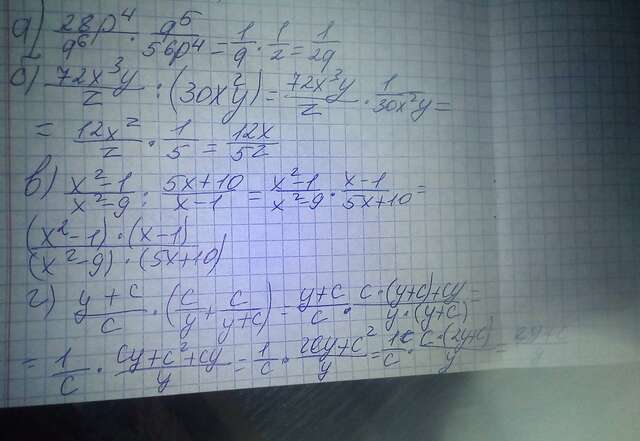 а) 28p⁴/q⁶ · q⁵/56p⁴ = 1/q · 1/2 = 1/2q
б) 72x³y/z : (30x²y) = 72x³y/z · 1/30x²y =
= 12x²/z · 1/5 = 12x/5z
в) x²-1/x²-9 : 5x+10/x-1 = x²-1/x²-9 · x-1/5x+10 =
(x²-1)·(x-1)/(x²-9)·(5x+10)
г) y+c/c · (c/y + c/y+c) = y+c/c · c·(y+c)+cy/y·(y+c) =
= 1/c · cy+c²+cy/y = 1/c · 2cy+c²/y = 1/c · c·(2y+c)/y = 2y+c/y